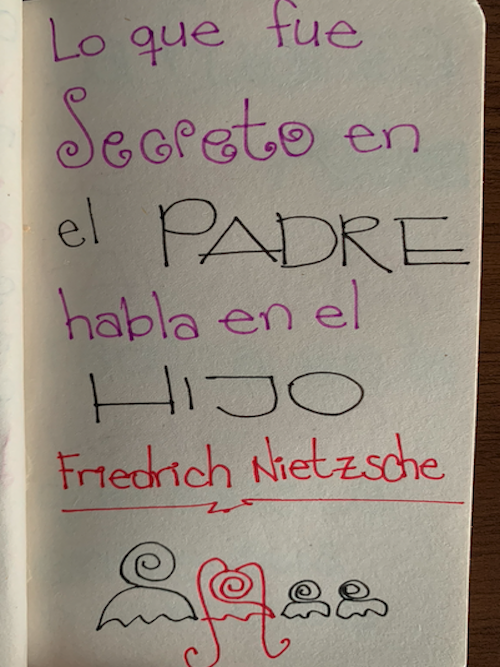 Lo que fue
Secreto en
el PADRE
habla en el
HIJO
Friedrich Nietzsche